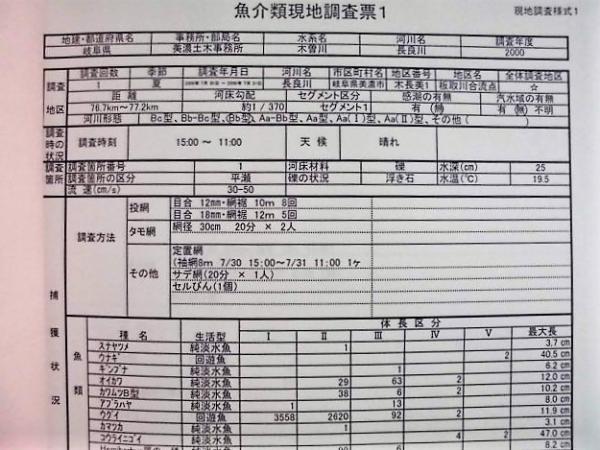 魚介類現地調査票1
現地調査様式1
地建・都道府県名 事務所・部局名 水系名 河川名 調査年度
岐阜県 美濃土木事務所 木曽川 長良川 2000
調査地区
調査回数 季節 調査年月日 河川名 市区町村名 地区番号 地区名 全体調査地区
1 夏 長良川 岐阜県美濃市 木長美1 板取川合流点 ☆
距離 河床勾配 セグメント区分 感潮の有無 汽水域の有無
76.7km～77.2km 約1 / 370 セグメント1 有 (無) 有 (無) 不明
河川形態 Bc型、Bb-Bc型、(Bb型)、Aa-Bb型、Aa型、Aa(Ⅰ)型、Aa(Ⅱ)型、その他( )
調査時の状況 調査時刻 15:00 ～ 11:00 天候 晴れ
調査箇所
調査箇所番号 1 河床材料 礫 水深(cm) 25
調査箇所の区分 平瀬 礫の状況 浮き石 水温(℃) 19.5
流速(cm/s) 30-50
捕獲状況
調査方法
投網 目合 12mm・網裾 10m 8回
目合 18mm・網裾 12m 5回
タモ網 網径 30cm 20分 × 2人
その他 定置網
(袖網8m 7/30 15:00～7/31 11:00 1ヶ
サデ網(20分 × 1人)
セルびん(1個)
魚類
種名 生活型 体長区分 最大長
Ⅰ Ⅱ Ⅲ Ⅳ Ⅴ
スナヤツメ 純淡水魚 1 3.7 cm
ウナギ 回遊魚 2 40.5 cm
ギンブナ 純淡水魚 1 6.2 cm
オイカワ 純淡水魚 29 63 2 12.0 cm
カワムツB型 純淡水魚 38 6 2 10.2 cm
アブラハヤ 純淡水魚 1 13 8.0 cm
ウグイ 回遊魚 3558 2620 92 2 11.9 cm
カマツカ 純淡水魚 1 3.1 cm
コウライニゴイ 純淡水魚 4 2 47.0 cm
8.2 cm